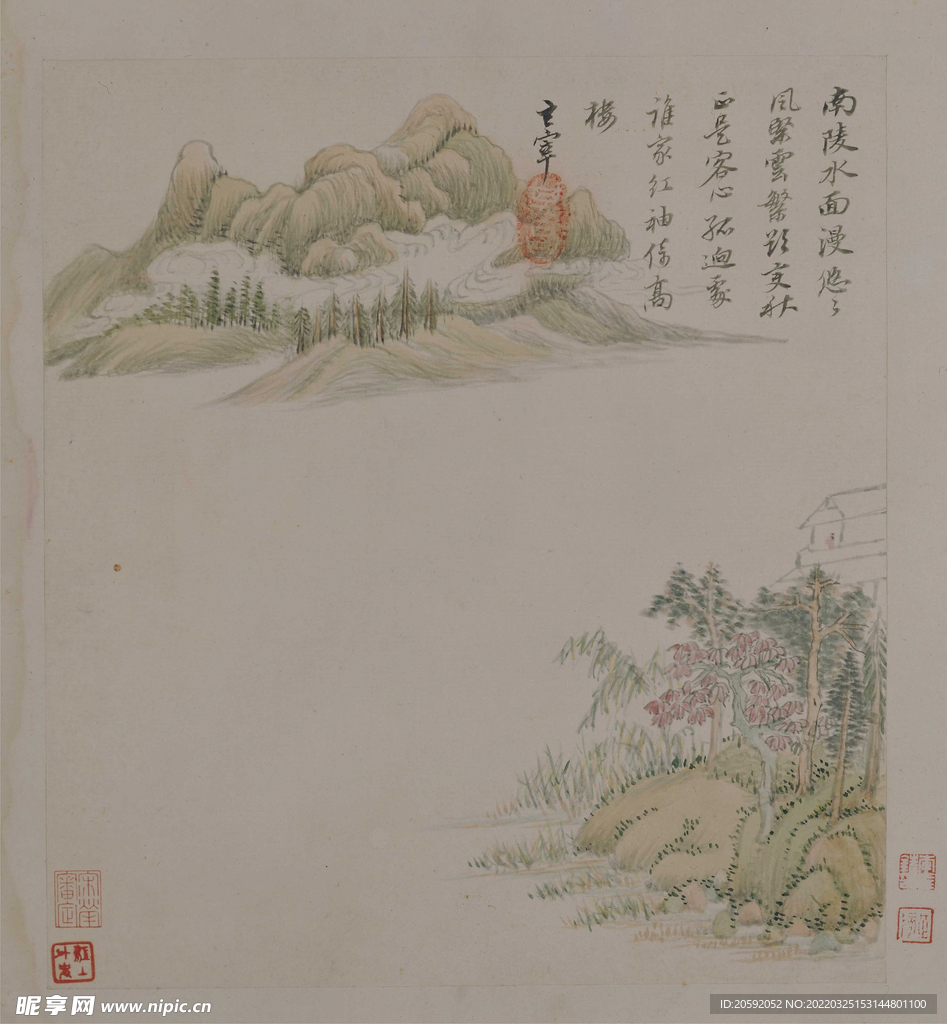 南陵水面漫悠〻
風緊雲繁欲变秋
正是客心孤迥處
誰家紅袖倚高
樓
玄宰
宋犖審定
江上外史
昵享网 www.nipic.cn
ID:20592052 NO:20220325153144801100